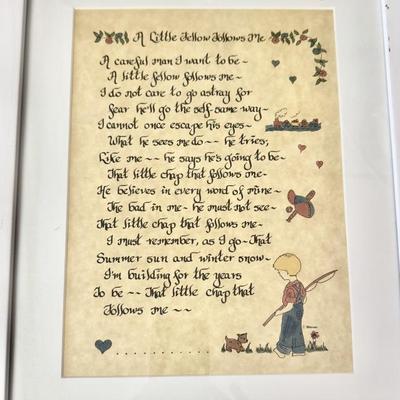 A Little Fellow Follows Me
A careful man I want to be~
A little fellow follows me~
I do not care to go astray for
fear he'll go the self-same way~
I cannot once escape his eyes~
What he sees me do~~ he tries;
Like me~~ he says he's going to be~
That little chap that follows me~
He believes in every word of mine~
The bad in me~ he must not see~
That little chap that follows me~
I must remember, as I go~That
Summer sun and winter snow~
I'm building for the years
To be~~ That little chap that
Follows me~~